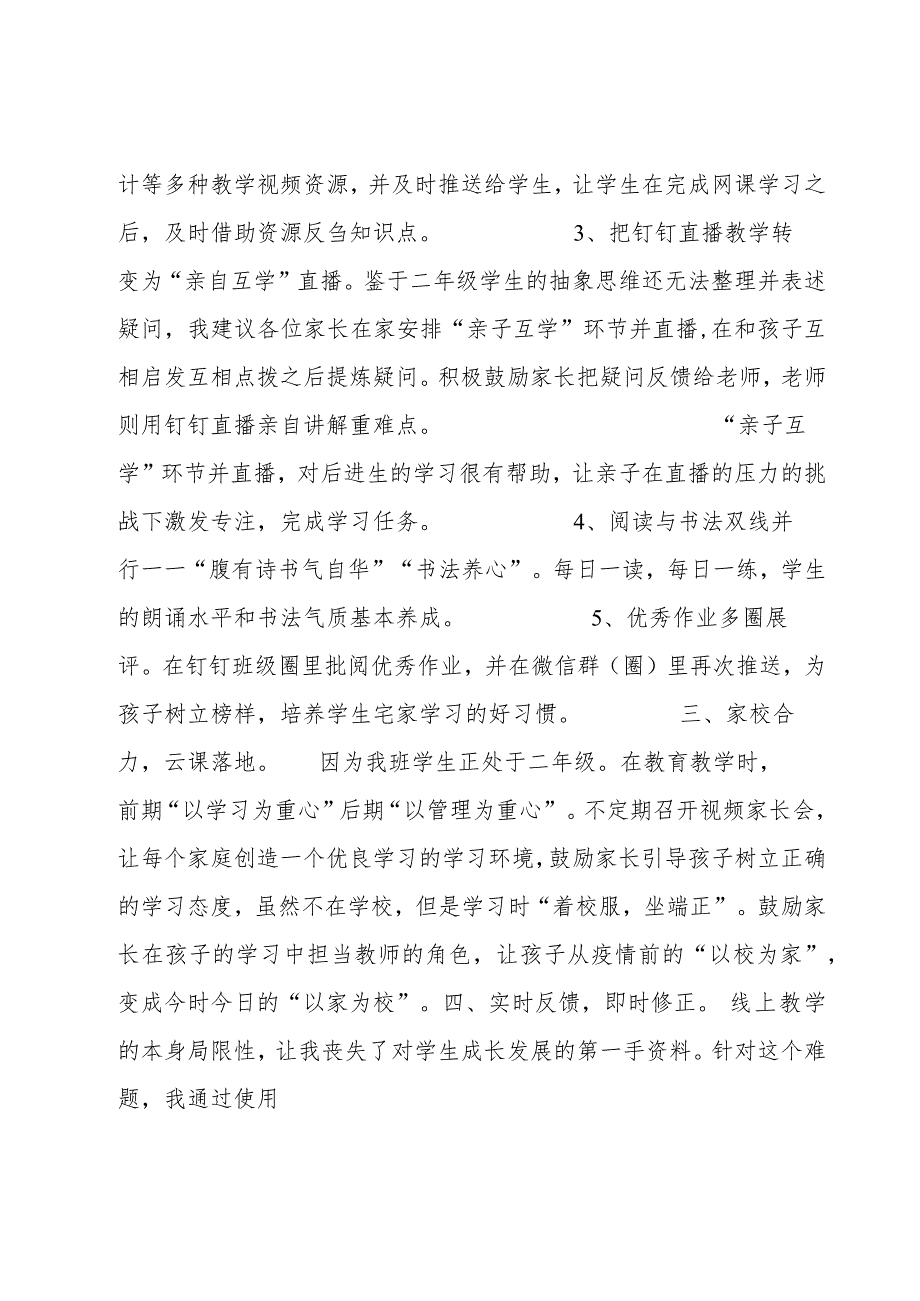 计等多种教学视频资源，并及时推送给学生，让学生在完成网课学习之
后，及时借助资源反刍知识点。 3、把钉钉直播教学转
变为“亲自互学”直播。鉴于二年级学生的抽象思维还无法整理并表述
疑问，我建议各位家长在家安排“亲子互学”环节并直播,在和孩子互
相启发互相点拨之后提炼疑问。积极鼓励家长把疑问反馈给老师，老师
则用钉钉直播亲自讲解重难点。 “亲子互
学”环节并直播，对后进生的学习很有帮助，让亲子在直播的压力的挑
战下激发专注，完成学习任务。 4、阅读与书法双线并
行一一“腹有诗书气自华”“书法养心”。每日一读，每日一练，学生
的朗诵水平和书法气质基本养成。 5、优秀作业多圈展
评。在钉钉班级圈里批阅优秀作业，并在微信群（圈）里再次推送，为
孩子树立榜样，培养学生宅家学习的好习惯。 三、家校合
力，云课落地。 因为我班学生正处于二年级。在教育教学时，
前期“以学习为重心”后期“以管理为重心”。不定期召开视频家长会，
让每个家庭创造一个优良学习的学习环境，鼓励家长引导孩子树立正确
的学习态度，虽然不在学校，但是学习时“着校服，坐端正”。鼓励家
长在孩子的学习中担当教师的角色，让孩子从疫情前的“以校为家”，
变成今时今日的“以家为校”。四、实时反馈，即时修正。 线上教学
的本身局限性，让我丧失了对学生成长发展的第一手资料。针对这个难
题，我通过使用